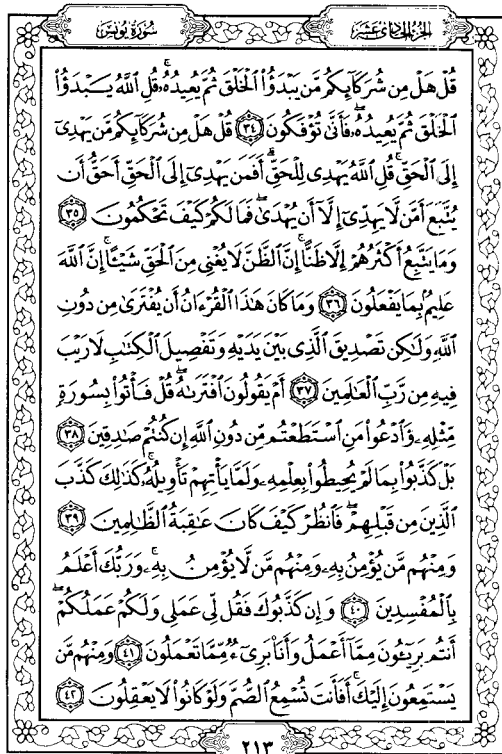 الجزء الحادي عشر
سورة يونس
قُلْ هَلْ مِن شُرَكَآئِكُم مَّن يَبْدَؤُاْ ٱلْخَلْقَ ثُمَّ يُعِيدُهُۥ ۚ قُلِ ٱللَّهُ يَبْدَؤُاْ
ٱلْخَلْقَ ثُمَّ يُعِيدُهُۥ ۖ فَأَنَّىٰ تُؤْفَكُونَ ٣٤ قُلْ هَلْ مِن شُرَكَآئِكُم مَّن يَهْدِىٓ
إِلَى ٱلْحَقِّ ۚ قُلِ ٱللَّهُ يَهْدِى لِلْحَقِّ ۗ أَفَمَن يَهْدِىٓ إِلَى ٱلْحَقِّ أَحَقُّ أَن
يُتَّبَعَ أَمَّن لَّا يَهِدِّىٓ إِلَّآ أَن يُهْدَىٰ ۖ فَمَا لَكُمْ كَيْفَ تَحْكُمُونَ ٣٥
وَمَا يَتَّبِعُ أَكْثَرُهُمْ إِلَّا ظَنًّا ۚ إِنَّ ٱلظَّنَّ لَا يُغْنِى مِنَ ٱلْحَقِّ شَيْـًٔا ۚ إِنَّ ٱللَّهَ
عَلِيمٌۢ بِمَا يَفْعَلُونَ ٣٦ وَمَا كَانَ هَٰذَا ٱلْقُرْءَانُ أَن يُفْتَرَىٰ مِن دُونِ
ٱللَّهِ وَلَٰكِن تَصْدِيقَ ٱلَّذِى بَيْنَ يَدَيْهِ وَتَفْصِيلَ ٱلْكِتَٰبِ لَا رَيْبَ
فِيهِ مِن رَّبِّ ٱلْعَٰلَمِينَ ٣٧ أَمْ يَقُولُونَ ٱفْتَرَىٰهُ ۖ قُلْ فَأْتُواْ بِسُورَةٍ
مِّثْلِهِۦ وَٱدْعُواْ مَنِ ٱسْتَطَعْتُم مِّن دُونِ ٱللَّهِ إِن كُنتُمْ صَٰدِقِينَ ٣٨
بَلْ كَذَّبُواْ بِمَا لَمْ يُحِيطُواْ بِعِلْمِهِۦ وَلَمَّا يَأْتِهِمْ تَأْوِيلُهُۥ ۚ كَذَٰلِكَ كَذَّبَ
ٱلَّذِينَ مِن قَبْلِهِمْ ۖ فَٱنظُرْ كَيْفَ كَانَ عَٰقِبَةُ ٱلظَّٰلِمِينَ ٣٩
وَمِنْهُم مَّن يُؤْمِنُ بِهِۦ وَمِنْهُم مَّن لَّا يُؤْمِنُ بِهِۦ ۚ وَرَبُّكَ أَعْلَمُ
بِٱلْمُفْسِدِينَ ٤٠ وَإِن كَذَّبُوكَ فَقُل لِّى عَمَلِى وَلَكُمْ عَمَلُكُمْ ۖ
أَنتُم بَرِيٓـُٔونَ مِمَّآ أَعْمَلُ وَأَنَا۠ بَرِىٓءٌ مِّمَّا تَعْمَلُونَ ٤١ وَمِنْهُم مَّن
يَسْتَمِعُونَ إِلَيْكَ ۚ أَفَأَنتَ تُسْمِعُ ٱلصُّمَّ وَلَوْ كَانُواْ لَا يَعْقِلُونَ ٤٢
٢١٣